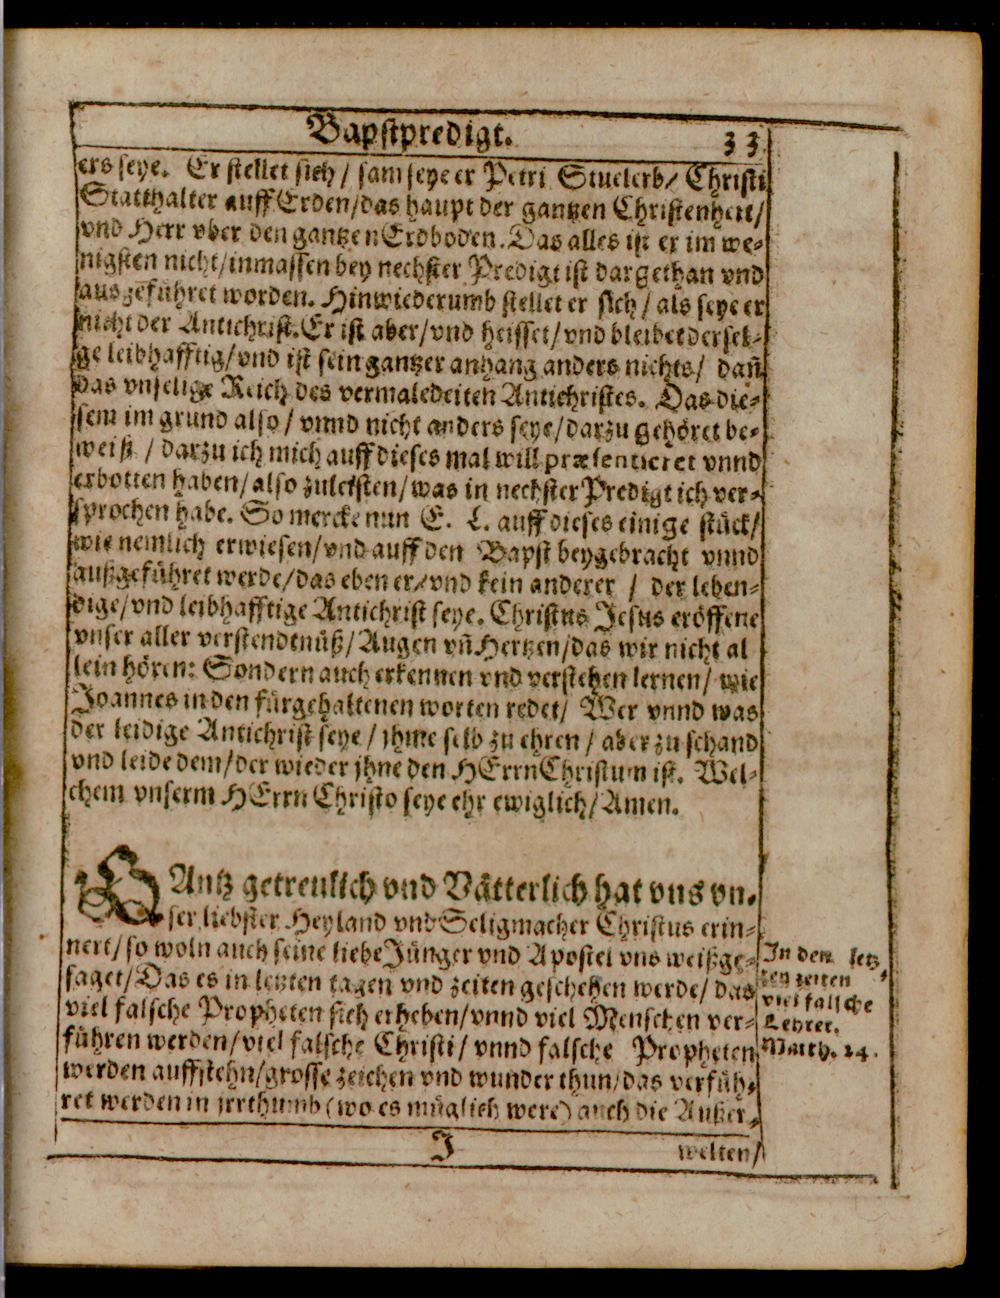 Bapstpredigt. 33
ers seye. Er stellet sich / sam seye er Petri Stuelerb / Christi
Statthalter auff Erden / das haupt der gantzen Christenheit /
vnd Herr vber den gantzen Erdboden. Das alles ist er im we-
nigsten nicht / inmassen bey nechster Predigt ist dargethan vnd
ausgeführet worden. Hinwiederumb stellet er sich / als seye er
nicht der Antichrist. Er ist aber / vnd heisset / vnd bleibet dersel-
ge leibhafftig / vnd ist sein gantzer anhang anders nichts / dañ
das vnselige Reich des vermaledeiten Antichristes. Das die-
sem im grund also / vnnd nicht anders seye / darzu gehöret be-
weiß / darzu ich mich auff dieses mal will præsentieret vnnd
erbotten haben / also zuleisten / was in nechster Predigt ich ver-
sprochen habe. So mercke nun E. L. auff dieses einige stück /
wie nemlich erwiesen / vnd auff den Bapst beygebracht vnnd
außgeführet werde / das eben er / vnd kein anderer / der leben-
dige / vnd leibhafftige Antichrist seye. Christus Jesus eröffene
vnser aller verstendtnüß / Augen vñ Hertzen / das wir nicht al
lein hören: Sondern auch erkennen vnd verstehen lernen / wie
Joannes in den fürgehaltenen worten redet / Wer vnnd was
der leidige Antichrist seye / jhme selb zu ehren / aber zu schand
vnd leide dem / der wieder jhne den HErrn Christum ist. Wel-
chem vnserm HErrn Christo seye ehr ewiglich / Amen.
GAntz getreulich vnd Vätterlich hat vns vn-
ser liebster Heyland vnd Seligmacher Christus erin-
nert / so woln auch seine liebe Jünger vnd Apostel vns weißge-
saget / Das es in letzten tagen vnd zeiten geschehen werde / das
viel falsche Propheten sich erheben / vnnd viel Menschen ver-
führen werden / viel falsche Christi / vnnd falsche Propheten
werden auffstehn / grosse zeichen vnd wunder thun / das verfüh-
ret werden in jrrthumb (wo es müglich were) auch die Außer-
In den letz-
ten zeiten
viel falsche
Lehrer.
Matth. 24.
J welten /